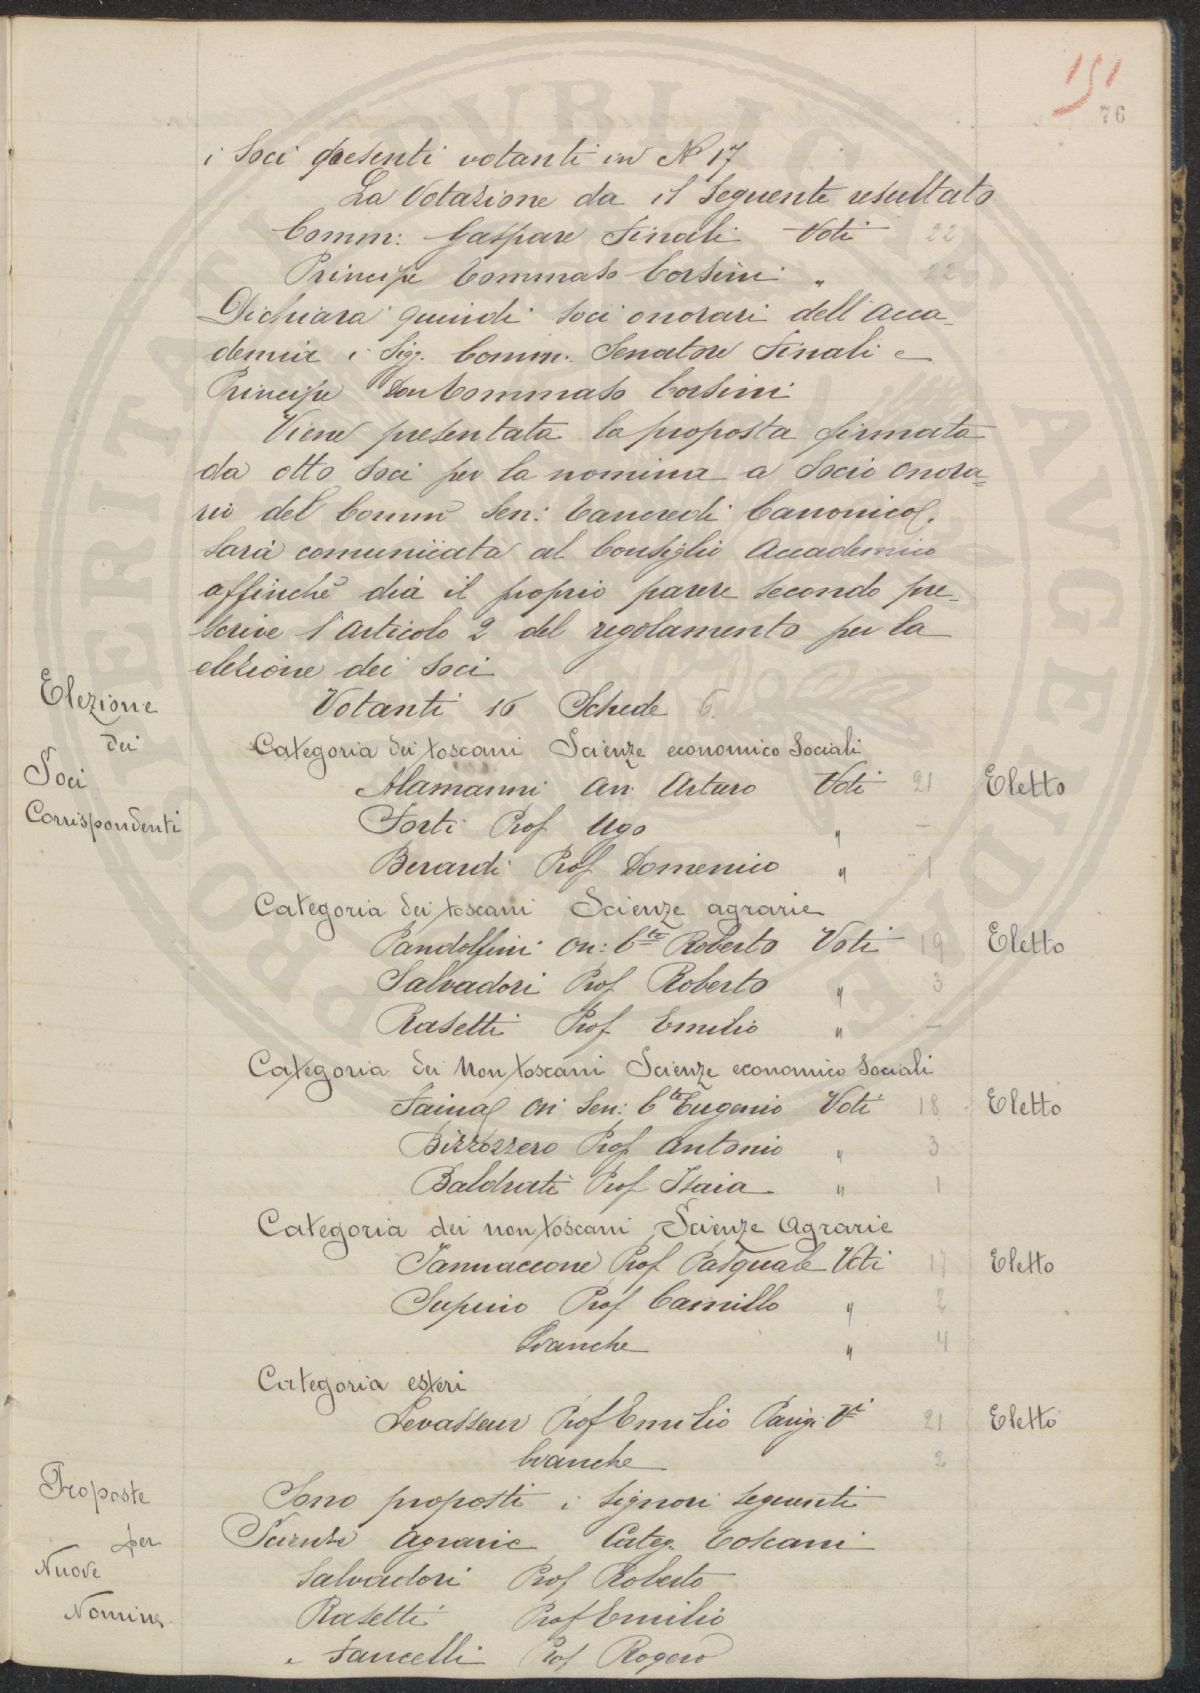 151
76
i Soci presenti votanti in N° 17
La Votazione da il Seguente resultato
Comm: Gaspare Finali Voti 22
Principe Tommaso Corsini " 22
Dichiara quindi soci onorari dell'Acca-
demia i Sigg. Comm. Senatore Finali e
Principe Don Tommaso Corsini
Viene presentata la proposta firmata
da otto soci per la nomina a Socio onora=
rio del Comm Sen: Tancredi Canonico.
Sarà comunicata al Consiglio Accademico
affinché dia il proprio parere secondo pre-
scrive l'Articolo 2 del regolamento per la
elezione dei soci
Elezione
dei
Soci
Corrispondenti
Votanti 16 Schede 6.
Categoria dei toscani Scienze economico Sociali
Alamanni An. Arturo Voti 21 Eletto
Forti Prof Ugo " —
Berardi Prof Domenico " 1
Categoria dei toscani Scienze agrarie
Pandolfini On: Cte Roberto Voti 19 Eletto
Salvadori Prof Roberto " 3
Rasetti Prof Emilio " —
Categoria dei Non toscani Scienze economico Sociali
Faina On Sen: Cte Eugenio Voti 18 Eletto
Bizzozzero Prof Antonio " 3
Baldrati Prof Isaia " 1
Categoria dei non toscani Scienze Agrarie
Jannaccone Prof Pasquale Voti 17 Eletto
Supino Prof Camillo " 2
Bianche " 4
Categoria esteri
Levasseur Prof Emilio Parigi Vti 21 Eletto
bianche 2
Proposte
per
Nuove
Nomine
Sono proposti i Signori seguenti
Scienze Agrarie Categ. Toscani
Salvadori Prof Roberto
Rasetti Prof Emilio
Fancelli Prof Rogero